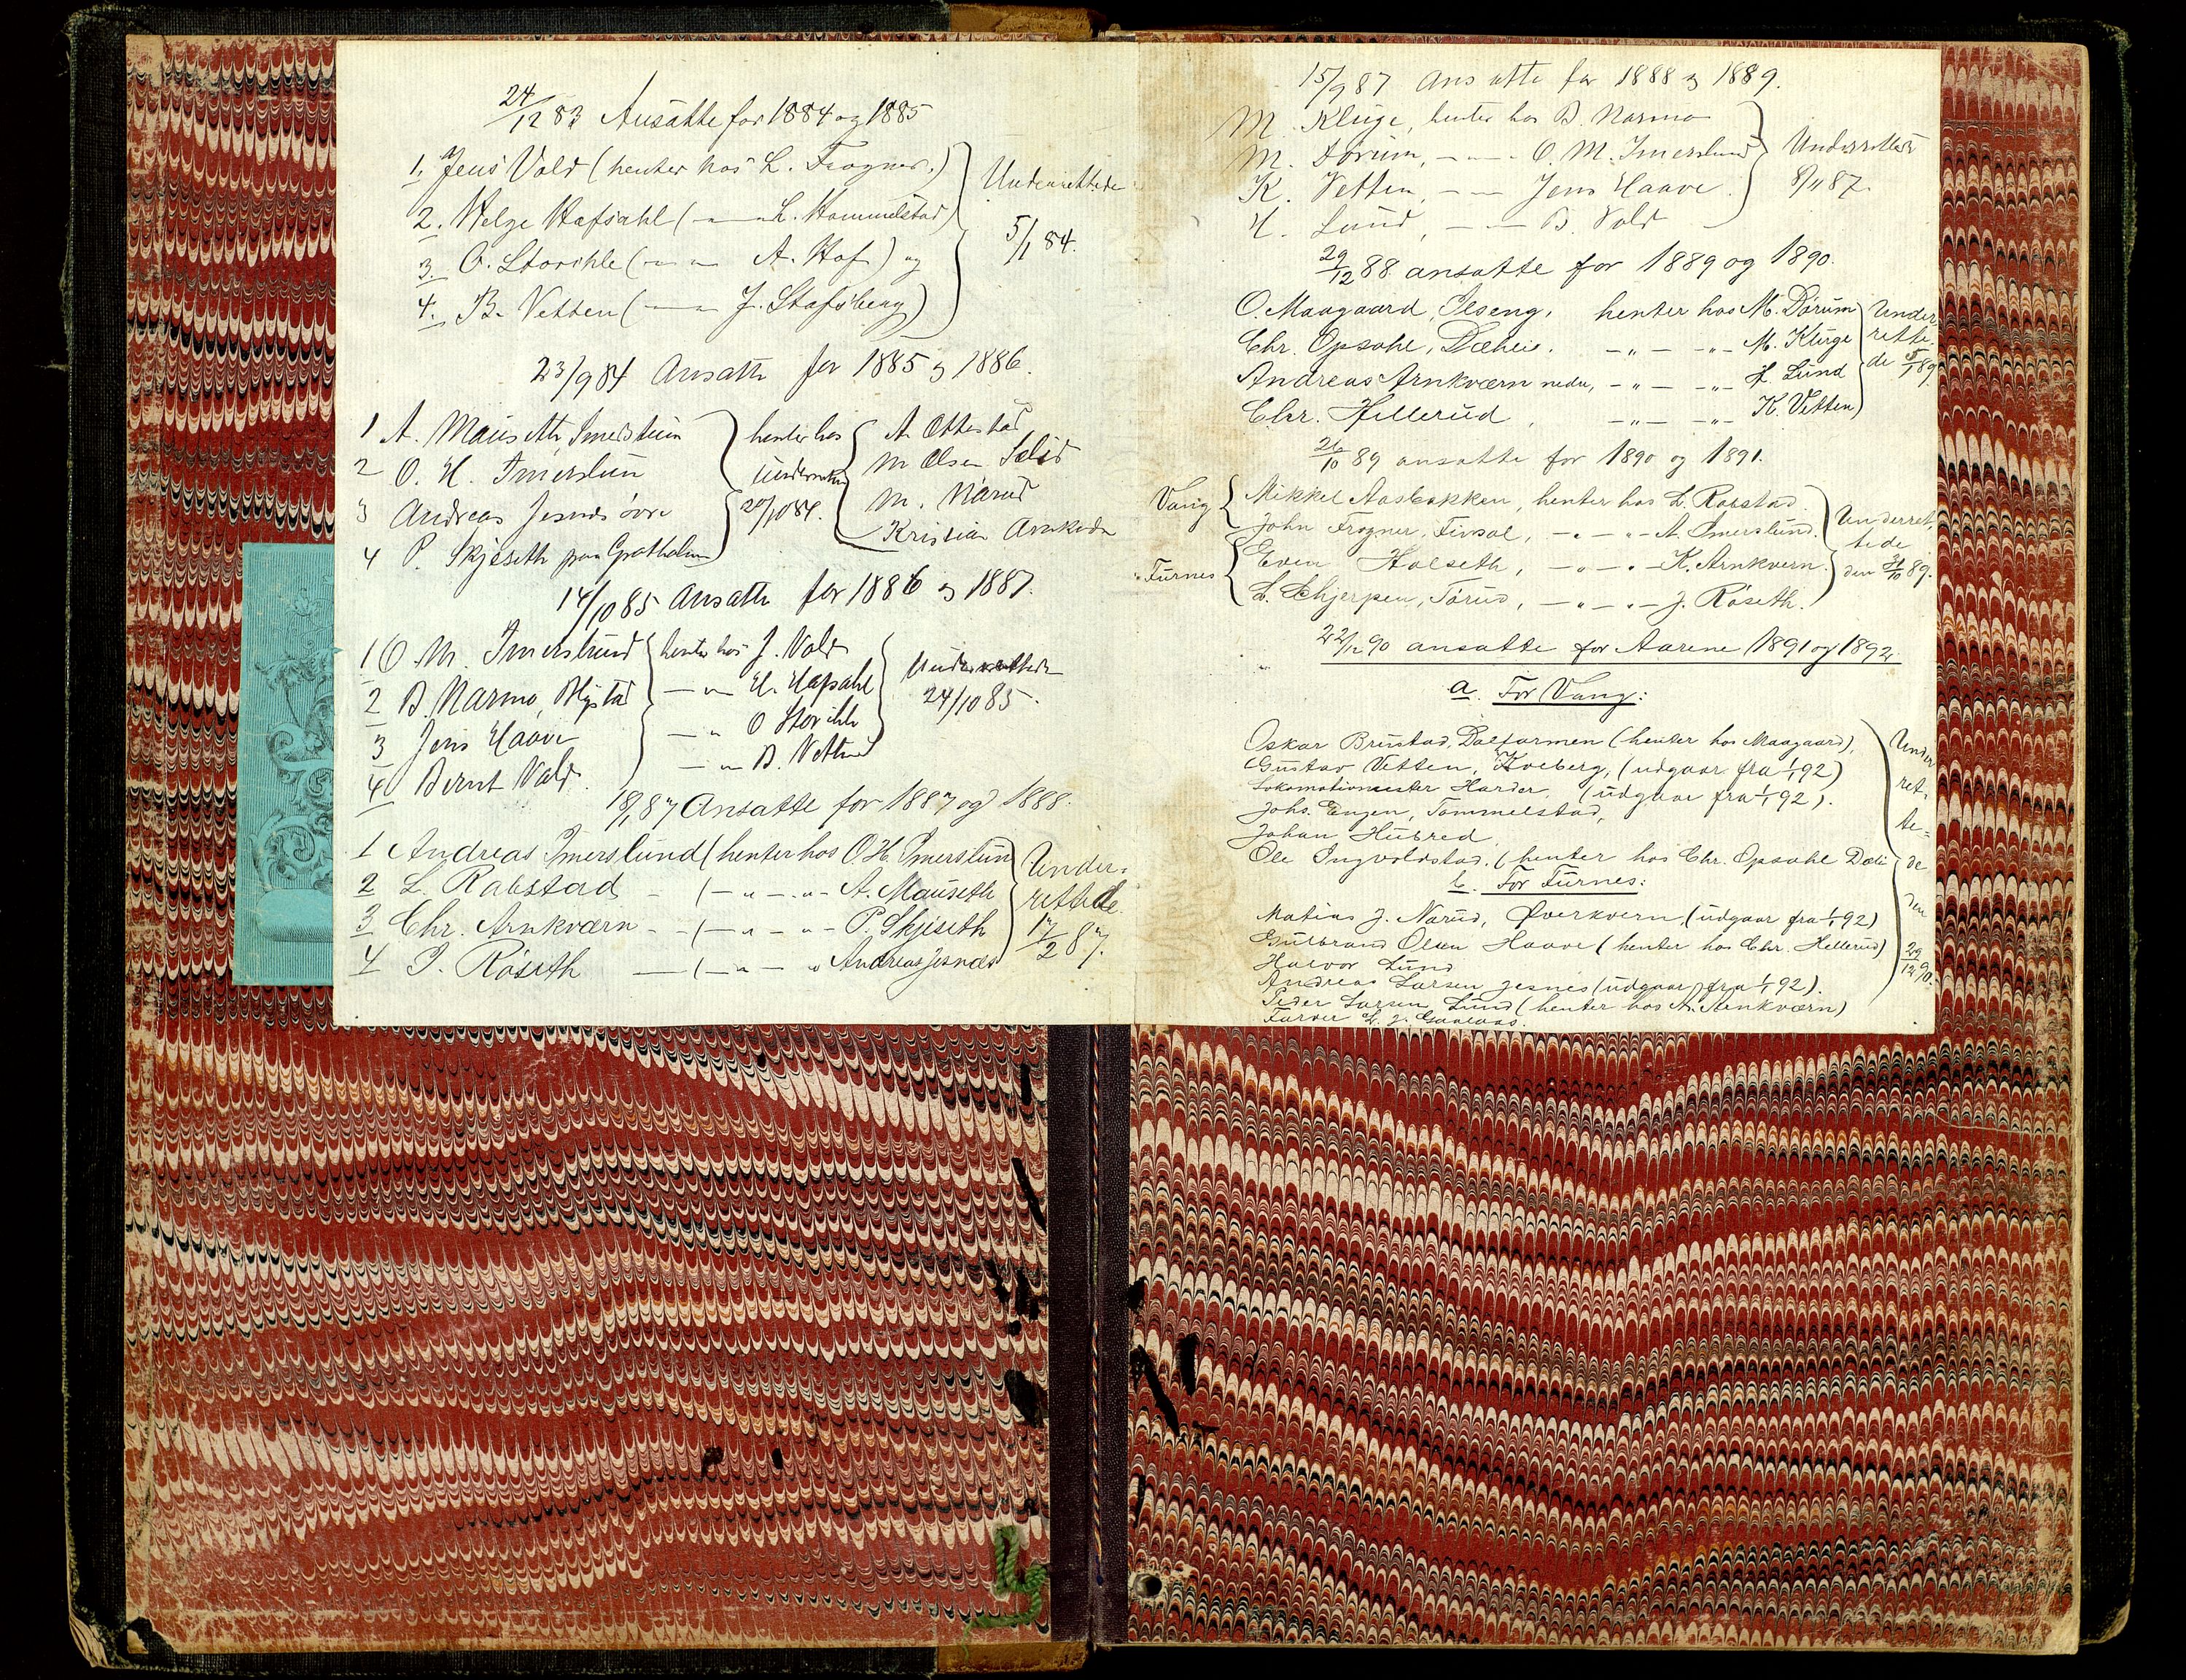 24/12 83 Ansatte for 1884 og 1885
1. Jens Vold (henter hos L. Frogner.)
2. Helge Hafsahl (—"— L. Hommelstad)
3. O. Storihle (—"— A. Hof) og
4. B. Vetten (—"— J. Stafsberg)
Underrettede
5/1 84.
23/9 84 Ansatte for 1885 og 1886.
1 A. Mauseth Imerslun
2 O. H. Imerslun
3 Andreas Jesnes øvre
4 P. Skjeseth paa Grøtholm
henter hos
20/10 84.
A. Ottestad
M. Olsen
M. Narud
Kristian Arnkværn
14/10 85 Ansatte for 1886 og 1887.
1 O. M. Imerslund henter hos J. Vold
2 B. Narmo, —"— H. Hafsahl
3 Jens Haave —"— O Storihle
4 Bernt Vold —"— B. Vetten
Underrettede
24/10 85.
18/1 87 Ansatte for 1887 og 1888.
1 Andreas Imerslund (henter hos O. H. Imerslun
2 L. Robstad - (—"—"— A. Mauseth
3 Chr. Arnkværn - (—"—"— P. Skjeseth
4 J. Røseth — (—"—"— Andreas Jesnæs
Under-
rettede.
17/2 87.
15/9 87 Ansatte for 1888 og 1889.
M. Kluge, henter hos B. Narmo
M. Dørum, —"— O. M. Imerslund
K. Vetten, —"— Jens Haave
H. Lund, —"— B. Vold
Underrettede
8/11 87.
29/12 88 ansatte for 1889 og 1890.
O. Maagaard, Ilseng, henter hos M. Dørum
Chr. Opsahl, Dæhlie, —"— —"— M. Kluge
Andreas Arnkværn nedre, —"— —"— H. Lund
Chr. Hillerud, —"— —"— K. Vetten
Under-
rette-
de 5/1 89.
26/10 89 ansatte for 1890 og 1891.
Vang
Mikkel Aasbakken, henter hos L. Robstad.
John Frogner, Finsal, —"— "— A. Imerslund.
Furnes
Even Holseth, —"— "— K. Arnkvern.
L. Skjerpen, Torud, —"— "— J. Røseth.
Underret-
tede
den 31/10 89.
22/12 90 ansatte for Aarene 1891 og 1892.
a. For Vang:
Oskar Brustad, Dalfarmen (henter hos Maagaard),
Gustav Vetten, Kveberg, (udgaar fra 1/1 92)
Lokomotivmester Harder, (udgaar fra 1/1 92).
Johs. Engen, Tommelstad,
Johan Hubred
Ole Ingvoldstad, (henter hos Chr. Opsahl Dæli
b. For Furnes:
Matias J. Narud, Øverkvern, (udgaar fra 1/1 92)
Gulbrand Olsen Haave (henter hos Chr. Hellerud)
Halvor Lund
Andreas Larsen Jesnes (udgaar fra 1/1 92).
Peder Larsen Lund (henter hos A. Arnkværn)
Under
ret-
te-
de
den
29/12 90.